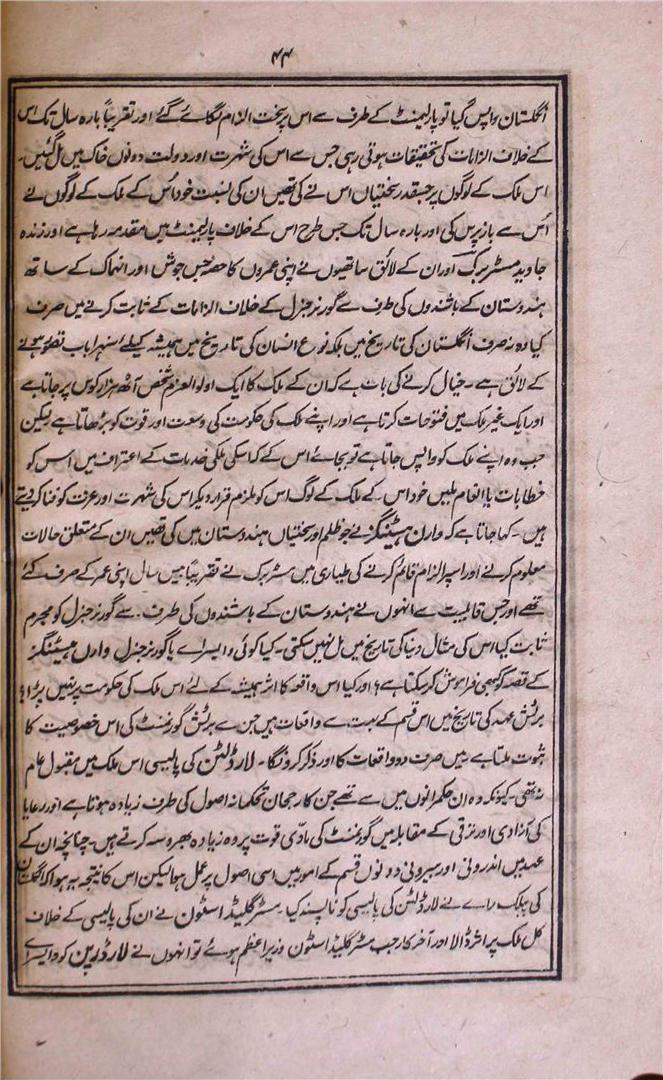 ۴۴
انگلستان واپس گیا تو پارلیمنٹ کے طرف سے اس پر سخت الزام لگائے گئے اور تقریباً بارہ سال تک اس
کے خلاف الزامات کی تحقیقات ہوتی رہی جس سے اس کی شہرت اور دولت دونوں خاک میں مل گئیں۔
اس ملک کے لوگوں پر جسقدر سختیاں اس نے کی تھیں ان کی نسبت خود اُس کے ملک کے لوگوں نے
اُس سے بازپرس کی اور بارہ سال تک جس طرح اس کے خلاف پارلیمنٹ میں مقدمہ رہا ہے اور زندہ
جاوید مسٹر برک اور ان کے لائق ساتھیوں نے اپنی عمروں کا حصہ جس جوش اور انہماک کے ساتھ
ہندوستان کے باشندوں کی طرف سے گورنر جنرل کے خلاف الزامات کے ثابت کرنے میں صرف
کیا وہ نہ صرف انگلستان کی تاریخ میں بلکہ نوع انسان کی تاریخ میں ہمیشہ کیلئے سنہرا باب تصور ہونے
کے لائق ہے۔ خیال کرنے کی بات ہے کہ ان کے ملک کا ایک اولوالعزم شخص آٹھ ہزار کوس پر جاتا ہے
اور ایک غیر ملک میں فتوحات کرتا ہے اور اپنے ملک کی حکومت کی وسعت اور قوت کو بڑھاتا ہے لیکن
جب وہ اپنے ملک کو واپس جاتا ہے تو بجائے اس کے کہ اسکی ملکی خدمات کے اعتراف میں اس کو
خطابات یا انعام ملیں خود اس کے ملک کے لوگ اس کو ملزم قرار دیکر اس کی شہرت اور عزت کو فنا کر دیتے
ہیں۔ کہا جاتا ہے کہ وارن ہیسٹنگز نے جو ظلم اور سختیاں ہندوستان میں کی تھیں ان کے متعلق حالات
معلوم کرنے اور اسپر الزام قائم کرنے کی طیاری میں مسٹر برک نے تقریباً بیس سال اپنی عمر کے صرف کئے
تھے اور جس قابلیت سے انہوں نے ہندوستان کے باشندوں کی طرف سے گورنر جنرل کو مجرم
ثابت کیا اس کی مثال دنیا کی تاریخ میں مل نہیں سکتی۔ کیا کوئی وایسراے یا گورنر جنرل وارن ہیسٹنگز
کے قصہ کو کبھی فراموش کر سکتا ہے؟ اور کیا اس واقعہ کا اثر ہمیشہ کے لئے اس ملک کی حکومت پر نہیں پڑا؟
برٹش عہد کی تاریخ میں اس قسم کے بہت سے واقعات ہیں جن سے برٹش گورنمنٹ کی اس خصوصیت کا
ثبوت ملتا ہے میں صرف دو واقعات کا اور ذکر کرونگا۔ لارڈ لٹن کی پالیسی اس ملک میں مقبول عام
نہ تھی۔ کیونکہ وہ ان حکمرانوں میں سے تھے جن کا رجحان تحکمانہ اصول کی طرف زیادہ ہوتا ہے اور رعایا
کی آزادی اور ترقی کے مقابلہ میں گورنمنٹ کی مادّی قوت پر وہ زیادہ بھروسہ کرتے ہیں۔ چنانچہ ان کے
عہد میں اندرونی اور بیرونی دونوں قسم کے امور میں اسی اصول پر عمل ہوا لیکن اس کا نتیجہ یہ ہوا کہ انگلستان
کی پبلک راے نے لارڈ لٹن کی پالیسی کو ناپسند کیا۔ مسٹر گلیڈاسٹون نے ان کی پالیسی کے خلاف
کل ملک پر اثر ڈالا اور آخرکار جب مسٹر گلیڈاسٹون وزیراعظم ہوئے تو انہوں نے لارڈ رپن کو وایسراے